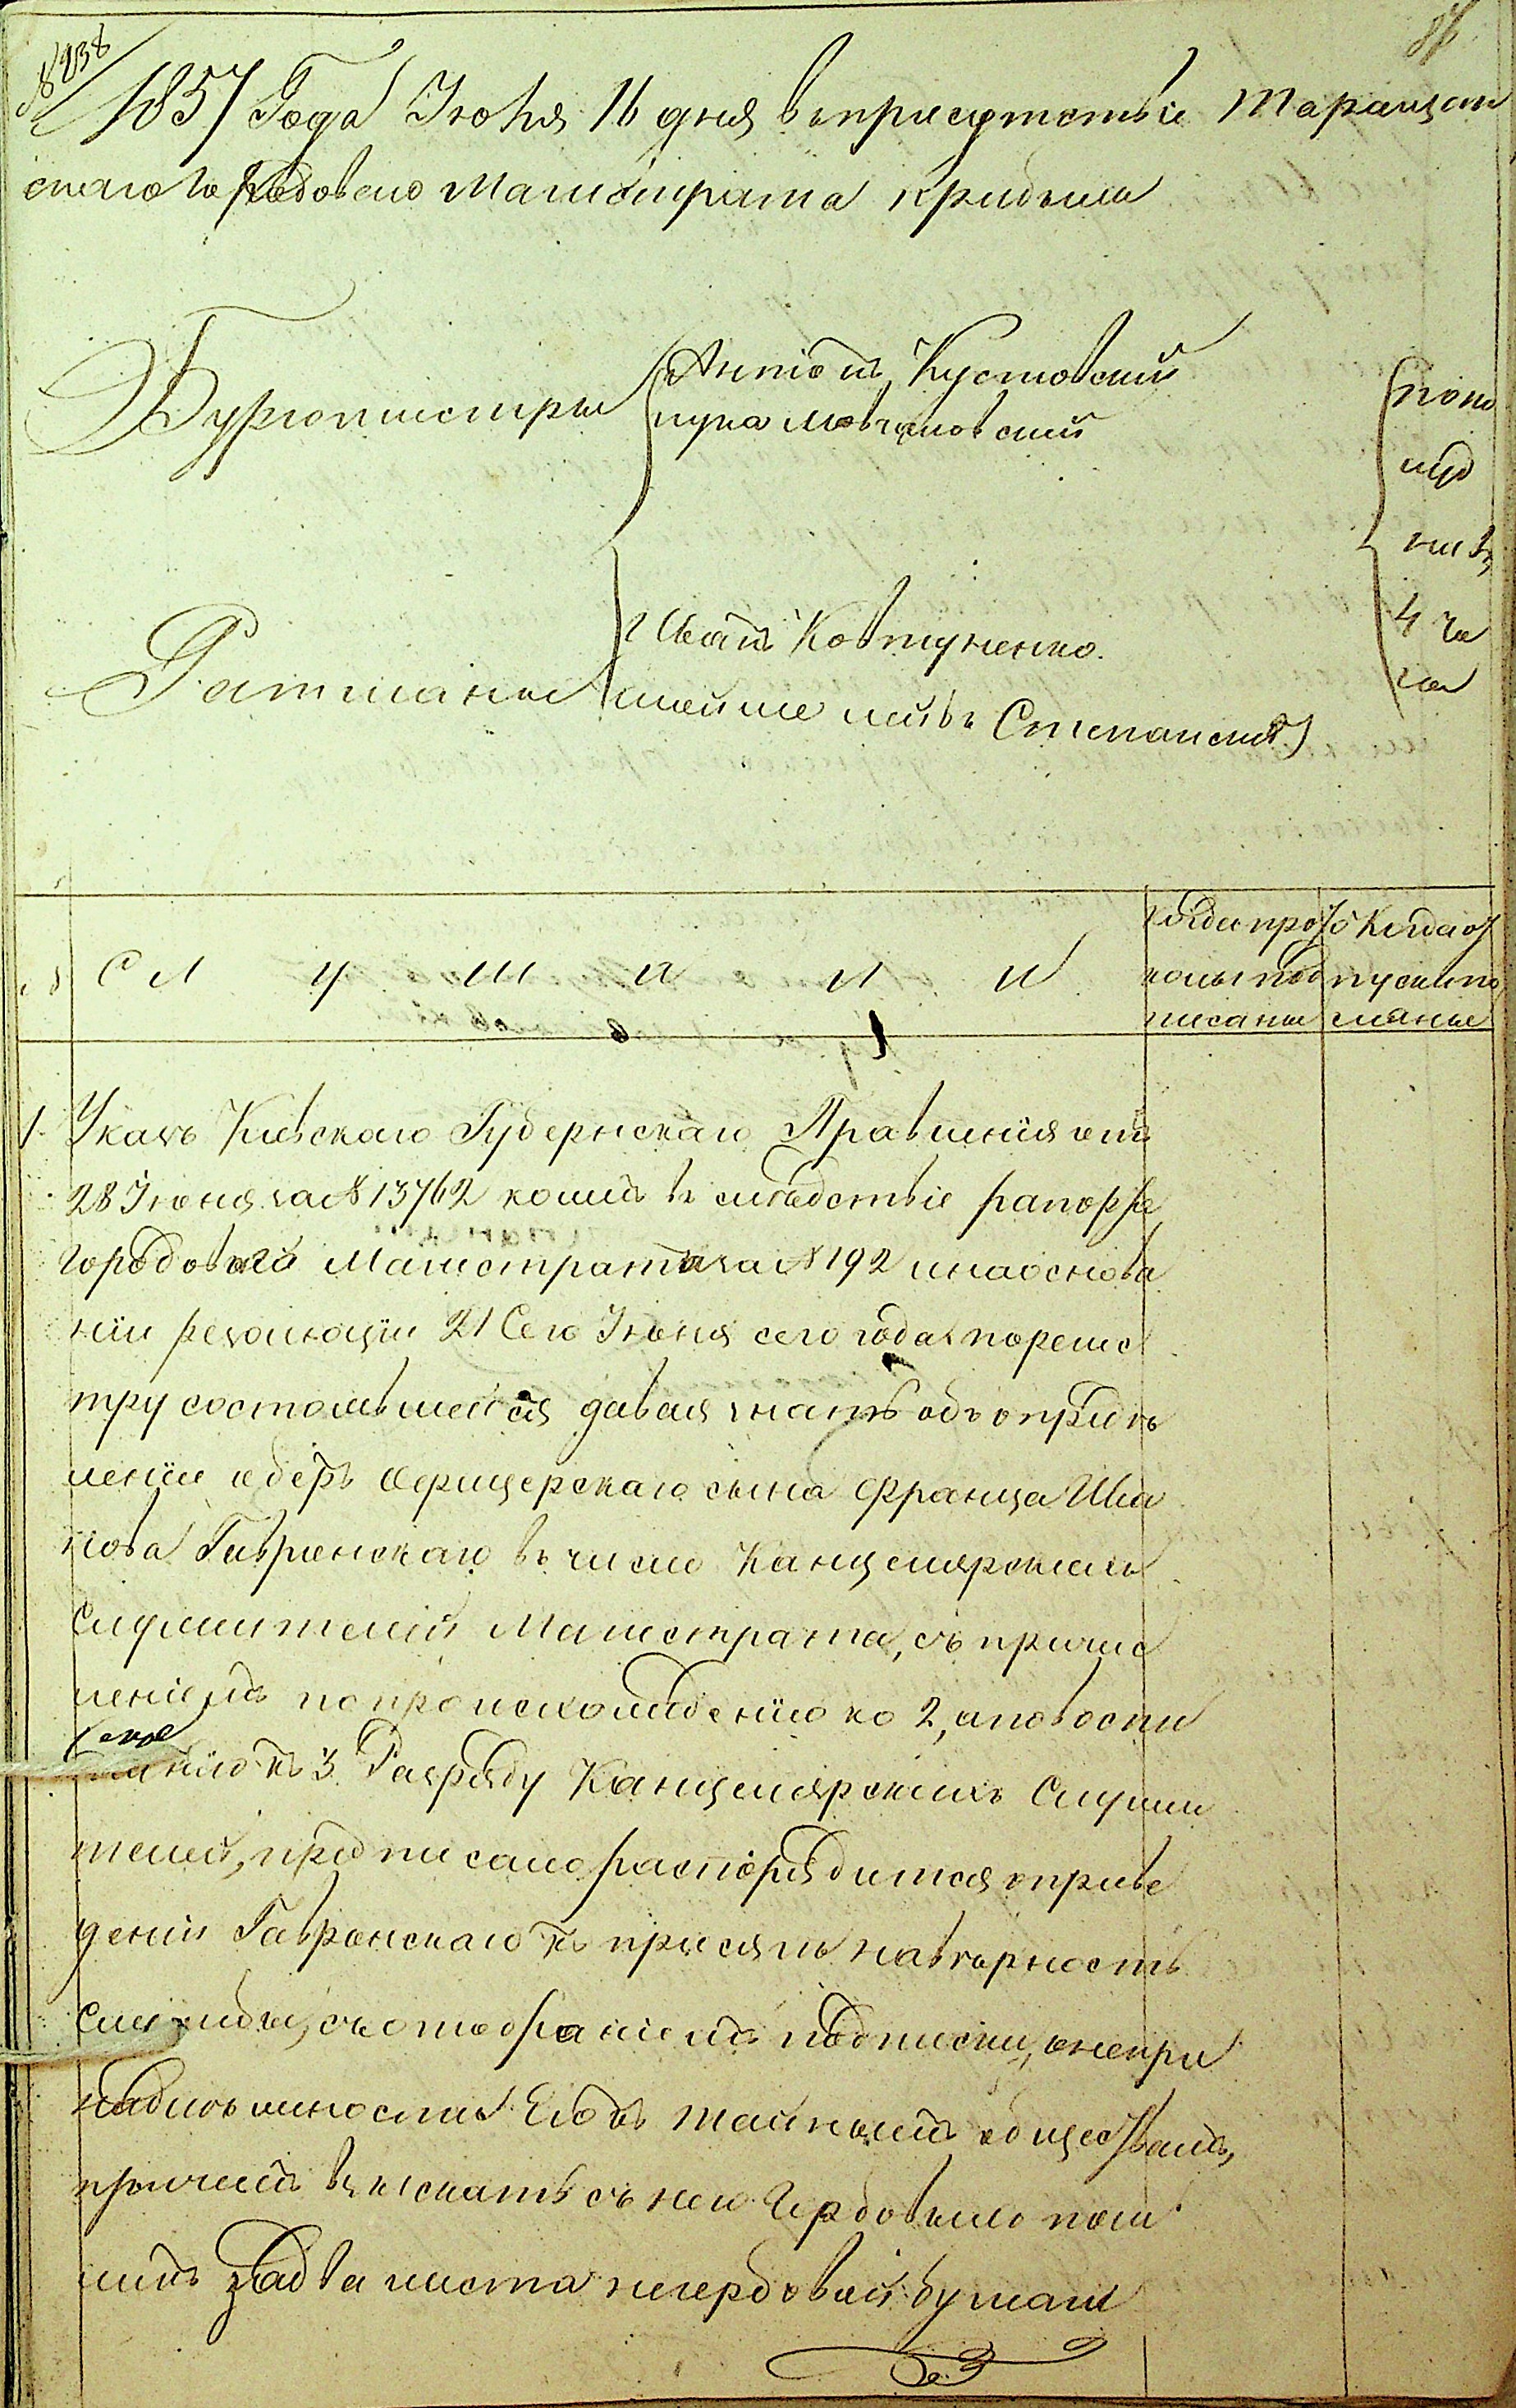 № 238
1857 Года Июня 16 дня въ присутствіе Таращан
скаго Городоваго Магистрата прибыли
Бургомистры
Антонъ Кустовский
лука Мовчановский
по по
луд
ни въ
4 ча
са
Ратманы
Иванъ Ковтуненко.
шмейше лейбъ Степанский
№
С л у ш а л и
когда прото
колы под
писаны
Когда от
пуски по
сланы
1. Указъ Киевскаго Губернскаго Правленія отъ
28 Июня за № 13762 коимъ въ следствіе рапорта
городоваго Магистрата за № 192 и на основа
ніи резолюціи 21 Сего Июня сего года по регис
тру состоявшейся давая знать объ опреде
леніи оберъ Офицерскаго сына Франца Ива
нова Гавронскаго въ число Канцелярскихъ
Служителей Магистрата, съ причис
леніемъ по происхожденію ко 2, а по воспи
танію къ 3 Разряду Канцелярскихъ Служи
телей, предписало распорядится о приве
деніи Гавронскаго къ присяге на верность
службы, съ отобраніемъ подписки, о непри
надлежности Его къ тайнымъ обществамъ,
причемъ взыскать съ него Гербовыхъ пош
линъ за два листа негербовой бумаги